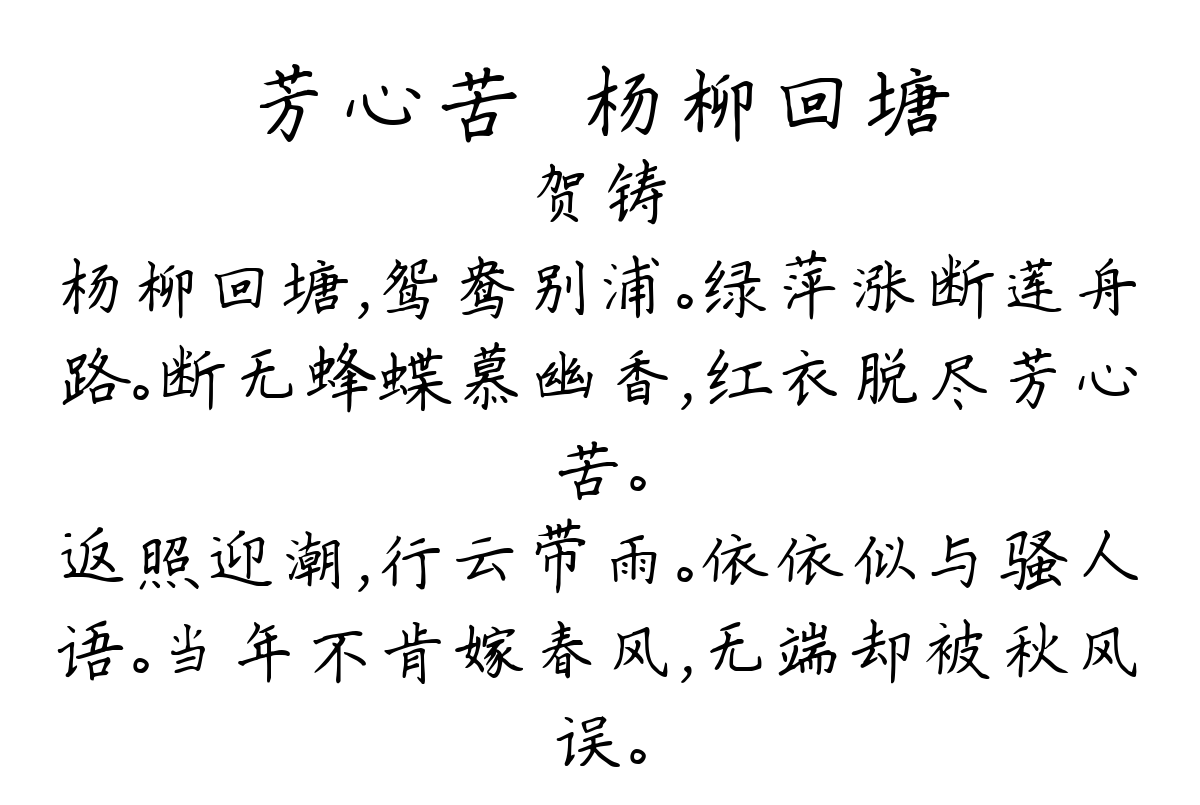 芳心苦 杨柳回塘
贺铸
杨柳回塘,鸳鸯别浦。绿萍涨断莲舟
路。断无蜂蝶慕幽香,红衣脱尽芳心
苦。
返照迎潮,行云带雨。依依似与骚人
语。当年不肯嫁春风,无端却被秋风
误。